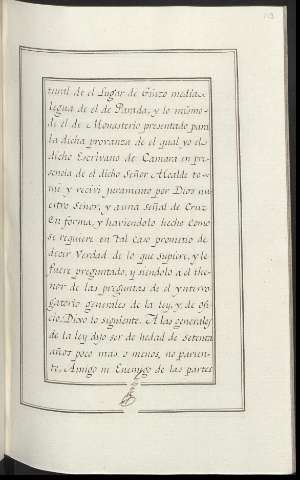 tural de el Lugar de Ginzo media
legua de el de Parada, y lo mismo
de el de Monasterio presentado para
la dicha provanza de el qual yo el
dicho Escrivano de Camara en pre
sencia de el dicho Señor Alcalde to
mè y recivi juramento por Dios nu
estro Señor, y a una señal de Cruz
en forma, y haviendolo hecho como
se requiere en tal caso prometio de
decir Verdad de lo que supiere, y le
fuere preguntado, y siendolo a el the
nor de las preguntas de el ynterro
gatorio generales de la ley, y de ofi
cio. Dixo lo siguiente. A las generales
de la ley dijo ser de hedad de setenta
años poco mas o menos, no parien
te, Amigo ni Enemigo de las partes